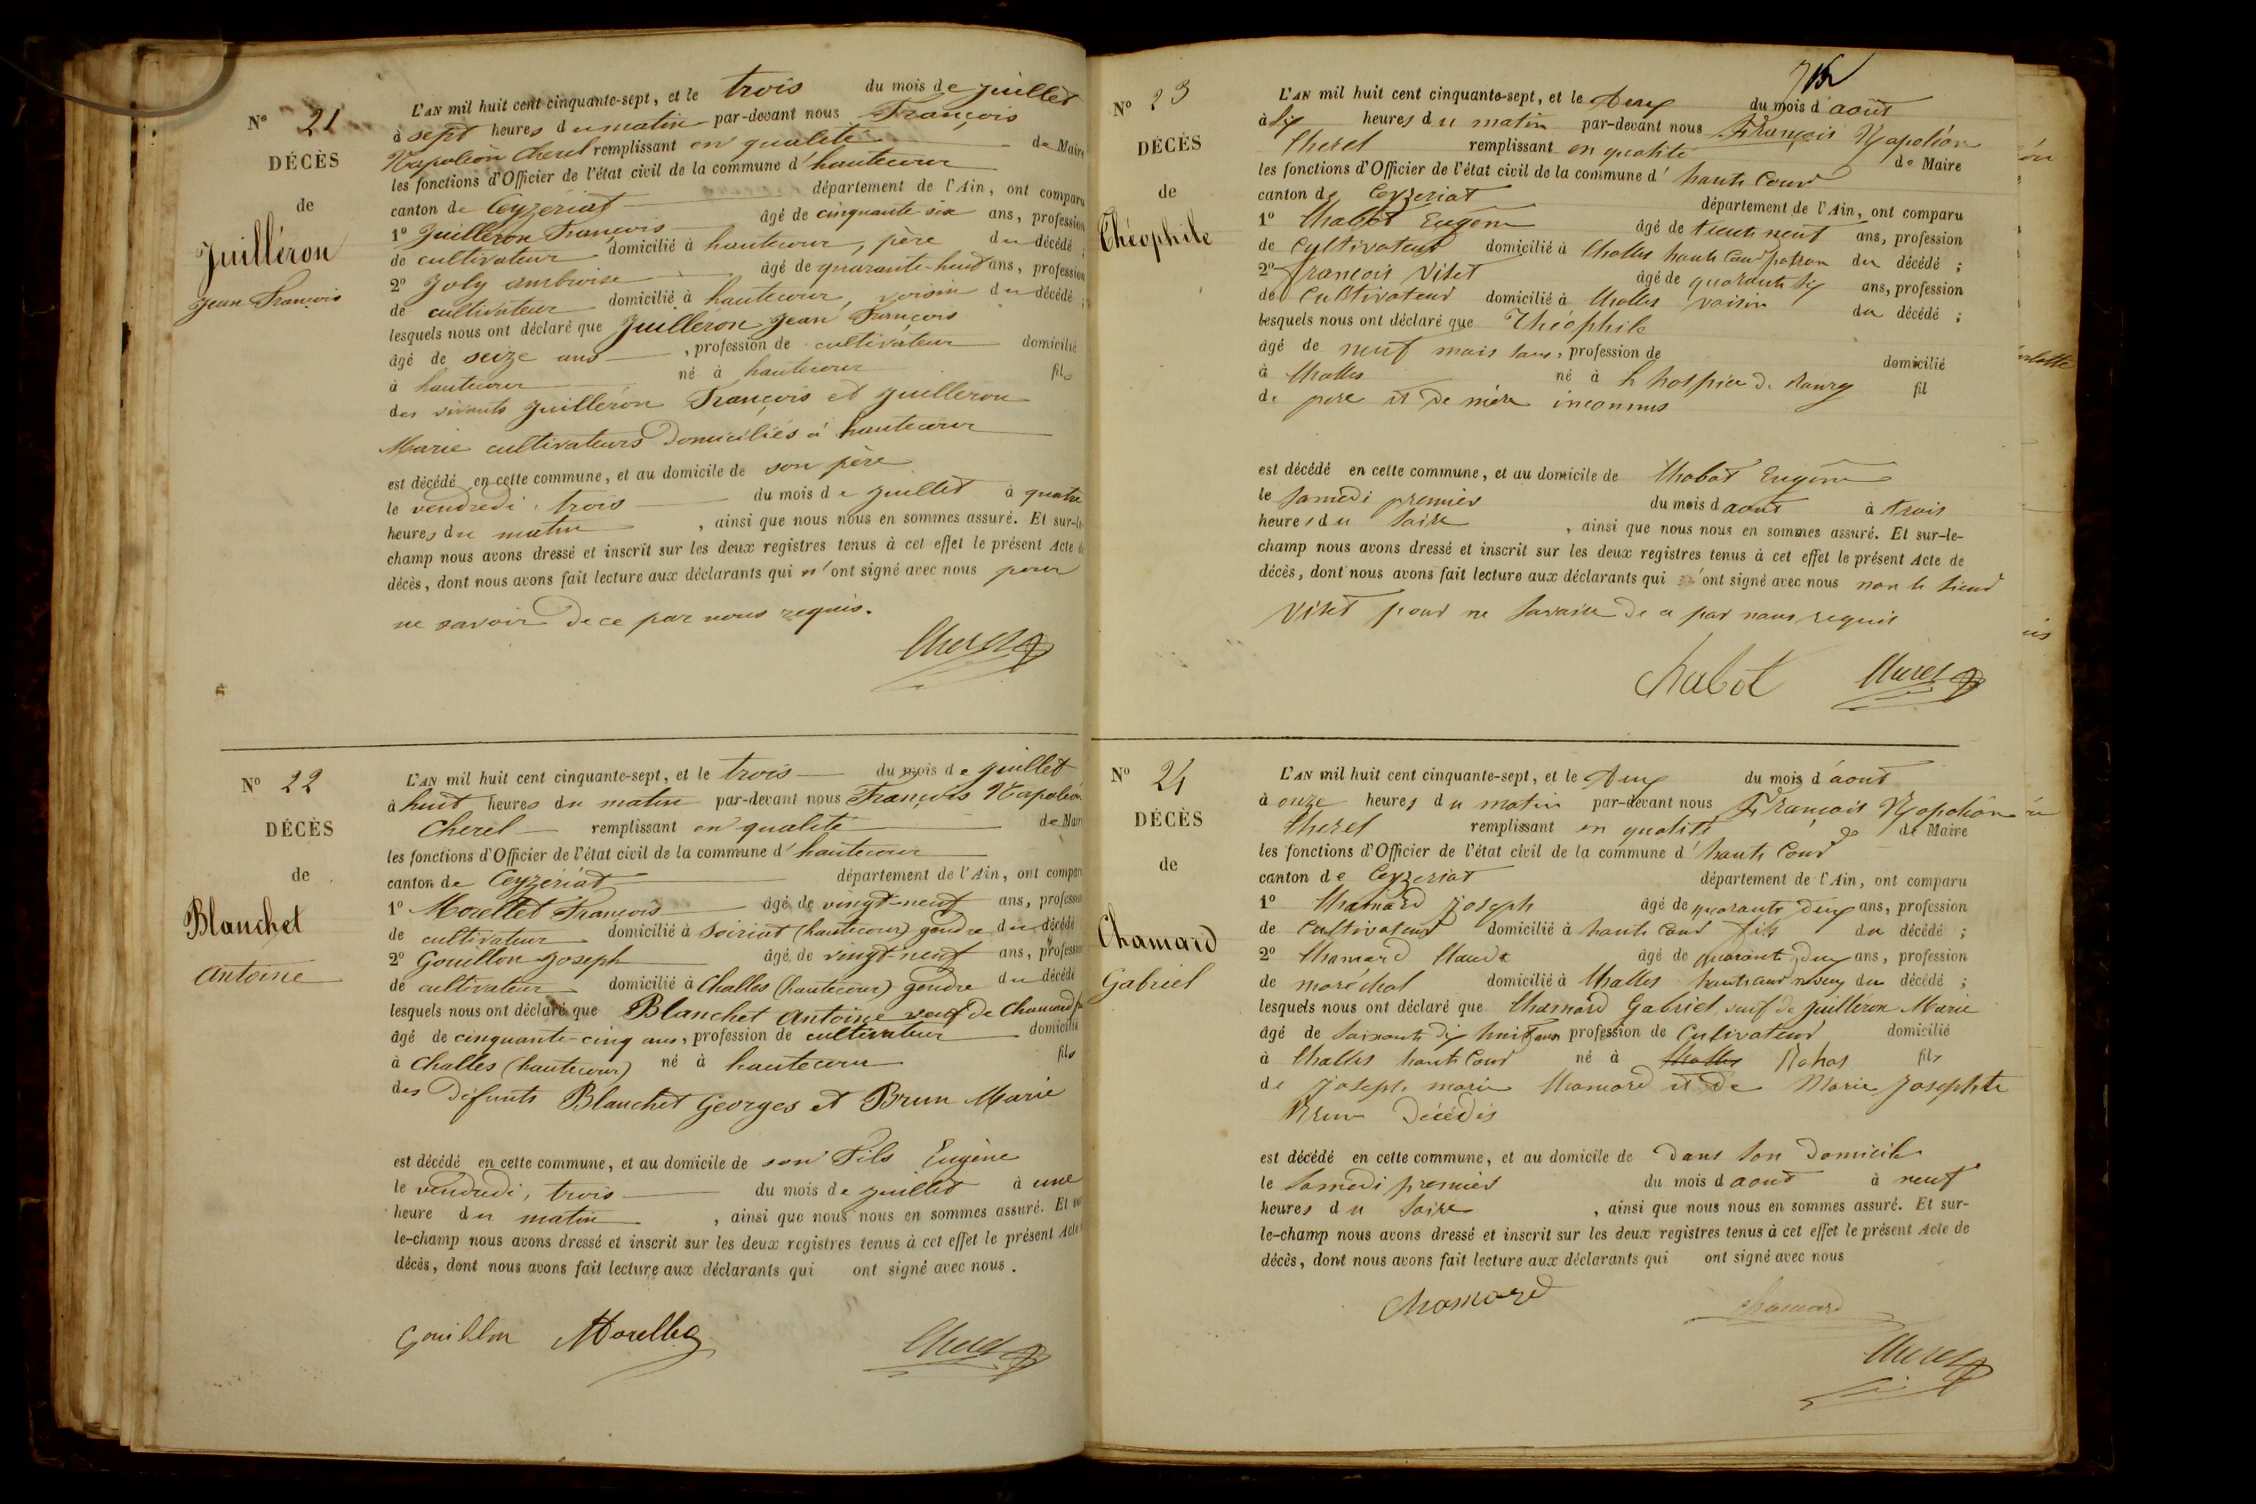 N° 21
DÉCÈS
de
Juilléron
Jean François
L'AN mil huit cent cinquante-sept, et le trois du mois de juillet
à sept heures du matin par-devant nous François
Napoléon Cherel remplissant en qualité de Maire
les fonctions d'Officier de l'état civil de la commune d'hautecour
canton de Ceyzériat département de l'Ain, ont comparu
1° Juilléron François âgé de cinquante six ans, profession
de cultivateur domicilié à hautecour, père du décédé ;
2° Joly ambroise âgé de quarante-huit ans, profession
de cultivateur domicilié à hautecour, voisin du décédé ;
lesquels nous ont déclaré que Juilléron Jean François
âgé de seize ans, profession de cultivateur domicilié
à hautecour né à hautecour fils
des vivants Juilléron François et Juilleron
Marie cultivateurs domiciliés à hautecour
est décédé en cette commune, et au domicile de son père
le vendredi, trois du mois de juillet à quatre
heures du matin, ainsi que nous nous en sommes assuré. Et sur-le-
champ nous avons dressé et inscrit sur les deux registres tenus à cet effet le présent Acte de
décès, dont nous avons fait lecture aux déclarants qui n'ont signé avec nous pour
ne savoir de ce par nous requis.
Cherel
N° 22
DÉCÈS
de
Blanchet
antoine
L'AN mil huit cent cinquante-sept, et le trois du mois de juillet
à huit heures du matin par-devant nous François Napoléon
Cherel remplissant en qualité de Maire
les fonctions d'Officier de l'état civil de la commune d'hautecour
canton de Ceyzériat département de l'Ain, ont comparu
1° Morellet François âgé de vingt-neuf ans, profession
de cultivateur domicilié à Soiriat (hautecour) gendre du décédé
2° Gouillon Joseph âgé de vingt-neuf ans, profession
de cultivateur domicilié à Challes (hautecour) gendre du décédé
lesquels nous ont déclaré que Blanchet Antoine veuf de Chamard
âgé de cinquante-cinq ans, profession de cultivateur domicilié
à Challes (hautecour) né à hautecour fils
des défunts Blanchet Georges et Brun Marie
est décédé en cette commune, et au domicile de son fils Eugène
le vendredi, trois du mois de juillet à une
heure du matin, ainsi que nous nous en sommes assuré. Et sur-
le-champ nous avons dressé et inscrit sur les deux registres tenus à cet effet le présent Acte de
décès, dont nous avons fait lecture aux déclarants qui ont signé avec nous.
Gouillon Morellet
Cherel
N° 23
DÉCÈS
de
Théophile
L'AN mil huit cent cinquante-sept, et le deux du mois d'août
à six heures du matin par-devant nous François Napoléon
Cherel remplissant en qualité de Maire
les fonctions d'Officier de l'état civil de la commune d'haute Cour
canton de Ceyzeriat département de l'Ain, ont comparu
1° Chabot Eugène âgé de trente neuf ans, profession
de Cultivateur domicilié à Challes haute Cour patron du décédé ;
2° françois Vitet âgé de quarante six ans, profession
de Cultivateur domicilié à Challes voisin du décédé ;
lesquels nous ont déclaré que Théophile
âgé de neuf mois sans, profession de domicilié
à Challes né à l'hospice de Bourg fil
de père et de mère inconnus
est décédé en cette commune, et au domicile de Chabot Eugène
le Samedi premier du mois d août à trois
heures du Soire, ainsi que nous nous en sommes assuré. Et sur-le-
champ nous avons dressé et inscrit sur les deux registres tenus à cet effet le présent Acte de
décès, dont nous avons fait lecture aux déclarants qui ont signé avec nous non le sieur
Vitet pour ne Savoire de ce par nous requis
Chabot Cherel
N° 24
DÉCÈS
de
Chamard
Gabriel
L'AN mil huit cent cinquante-sept, et le deux du mois d'août
à onze heures du matin par-devant nous François Napoléon
Cherel remplissant en qualité de Maire
les fonctions d'Officier de l'état civil de la commune d'haute Cour
canton de Ceyzeriat département de l'Ain, ont comparu
1° Chamard Joseph âgé de quarante deux ans, profession
de Cultivateur domicilié à haute Cour fils du décédé ;
2° Chamard Claude âgé de quarante deux ans, profession
de maréchal domicilié à Challes haute cour neveu du décédé ;
lesquels nous ont déclaré que Chamard Gabriel veuf de Juilléron Marie
âgé de Soixante dix huit ans profession de Cultivateur domicilié
à Challes haute Cour né à Challes Rohas fils
de Joseph marie Chamard et de Marie Josephte
Brun décédés
est décédé en cette commune, et au domicile de dans Son Domicile
le Samedi premier du mois d août à neuf
heures du Soire, ainsi que nous nous en sommes assuré. Et sur-
le-champ nous avons dressé et inscrit sur les deux registres tenus à cet effet le présent Acte de
décès, dont nous avons fait lecture aux déclarants qui ont signé avec nous
Chamard Chamard
Cherel